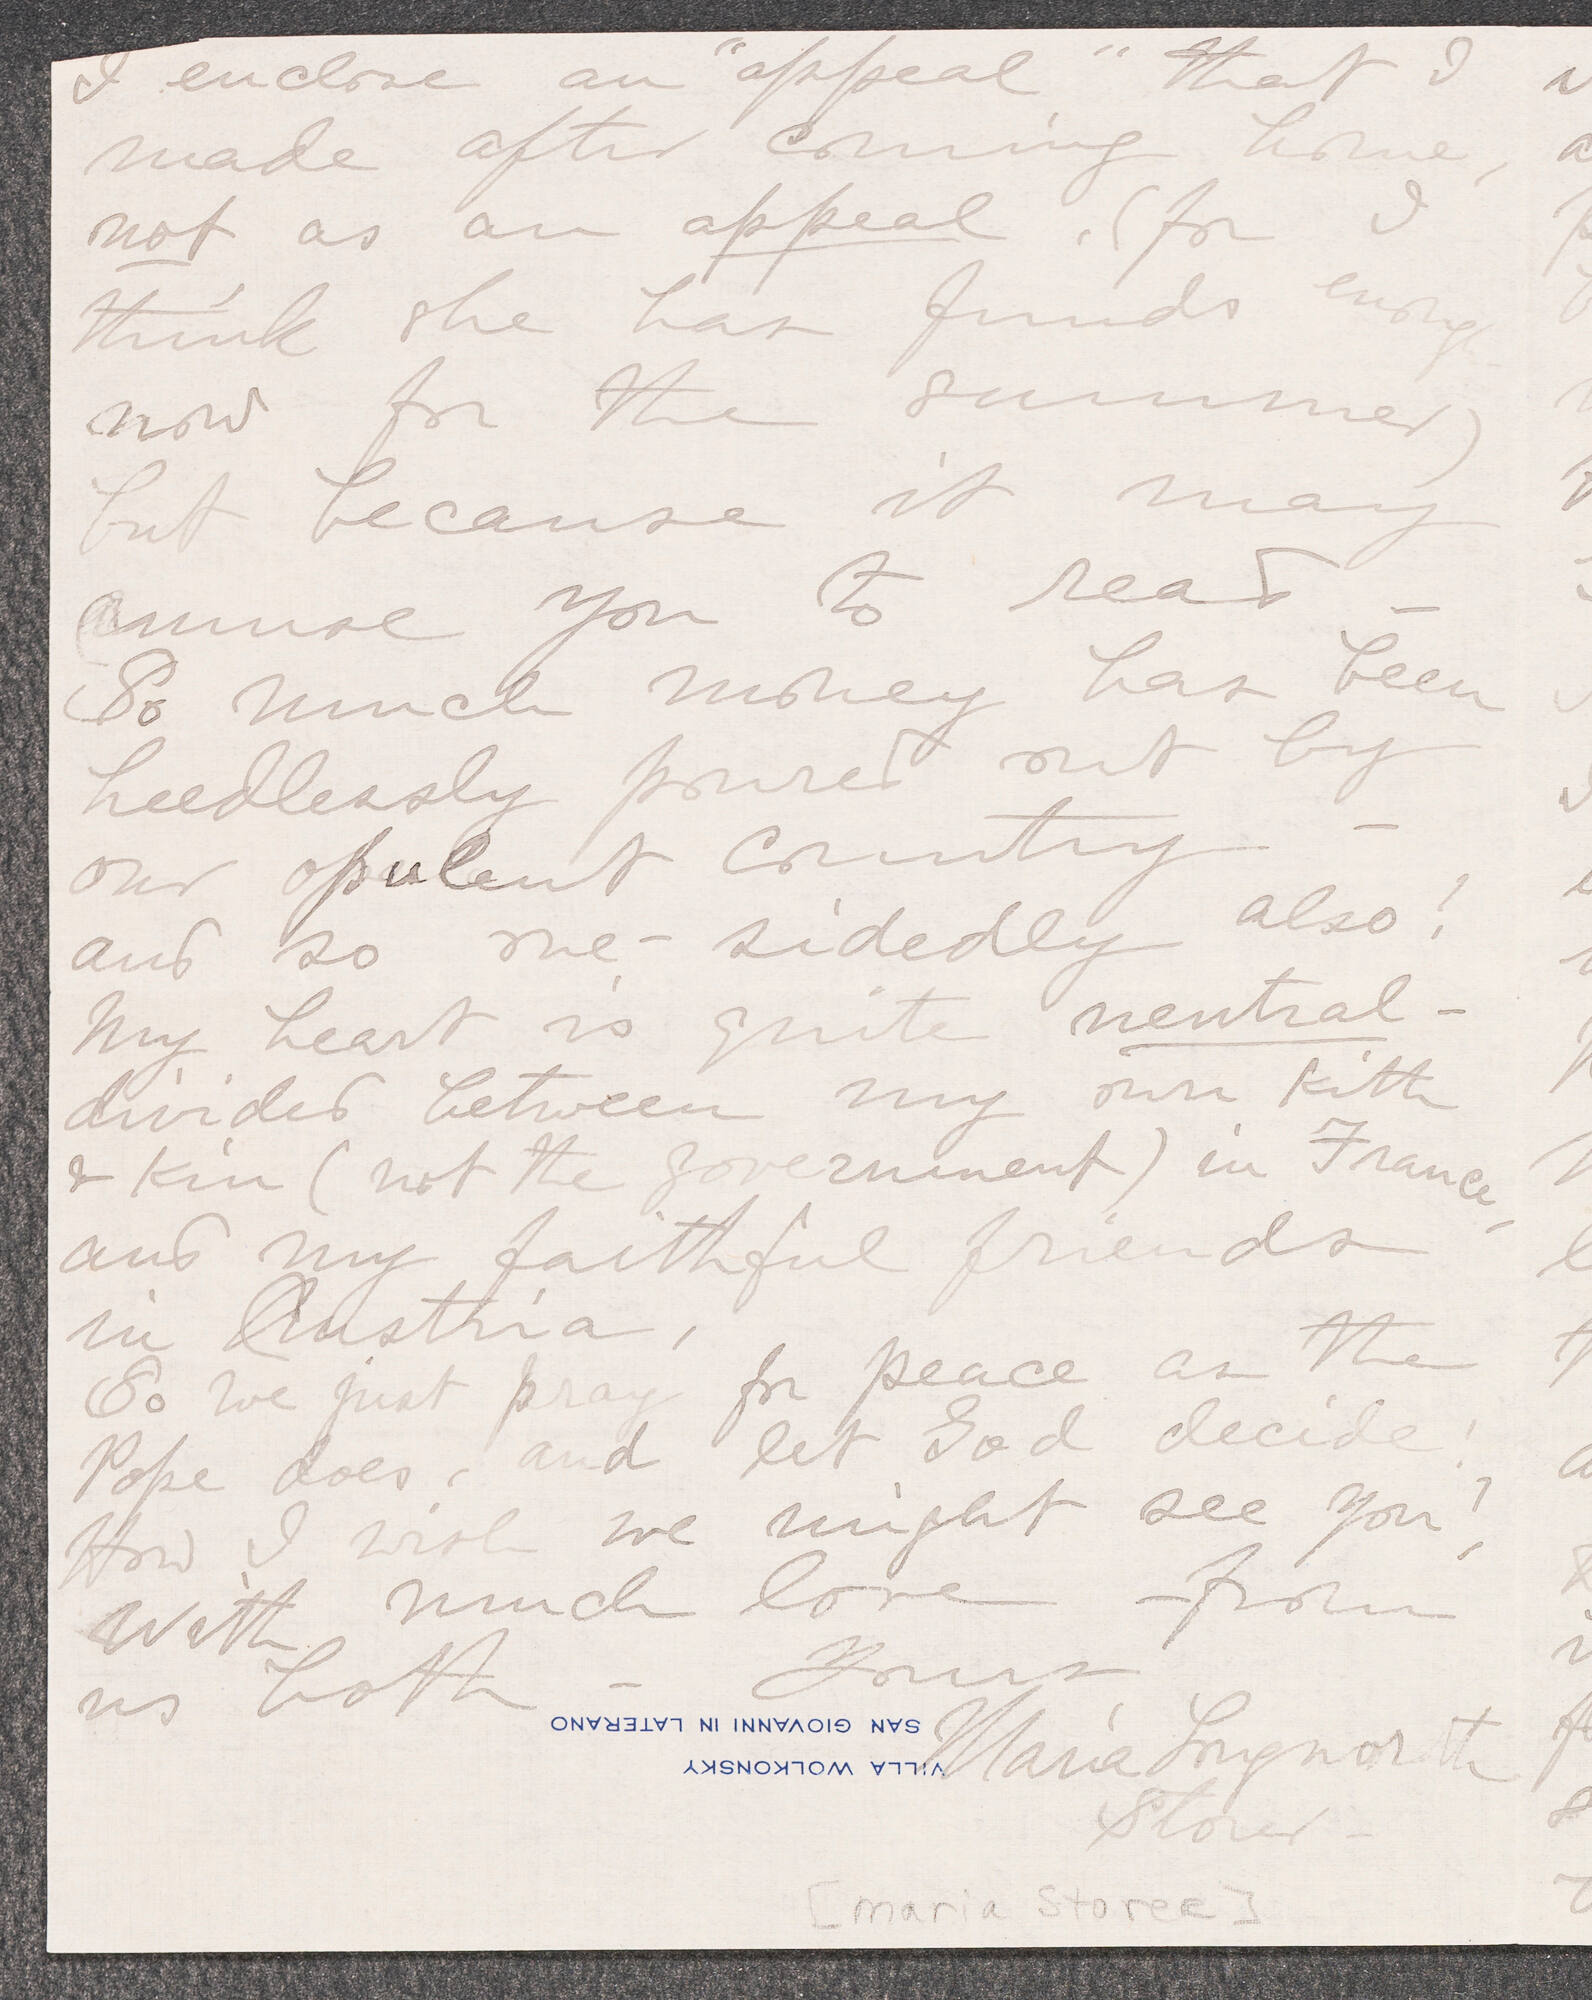 I enclose an "appeal" that I
made after coming home,
not as an appeal, (for I
think she has funds enough
now for the summer)
but because it may
amuse you to read -
So much money has been
heedlessly poured out by
our opulent country -
and so one-sidedly also!
My heart is quite neutral -
divided between my own kith
& kin (not the government) in France,
and my faithful friends
in Austria,
So we just pray for peace as the
Pope does, and let God decide!
How I wish we might see you!
With much love - from
us both - Yours
Maria Longworth
Storer -
SAN GIOVANNI IN LATERANO
VILLA WOLKONSKY
[Maria Storer]